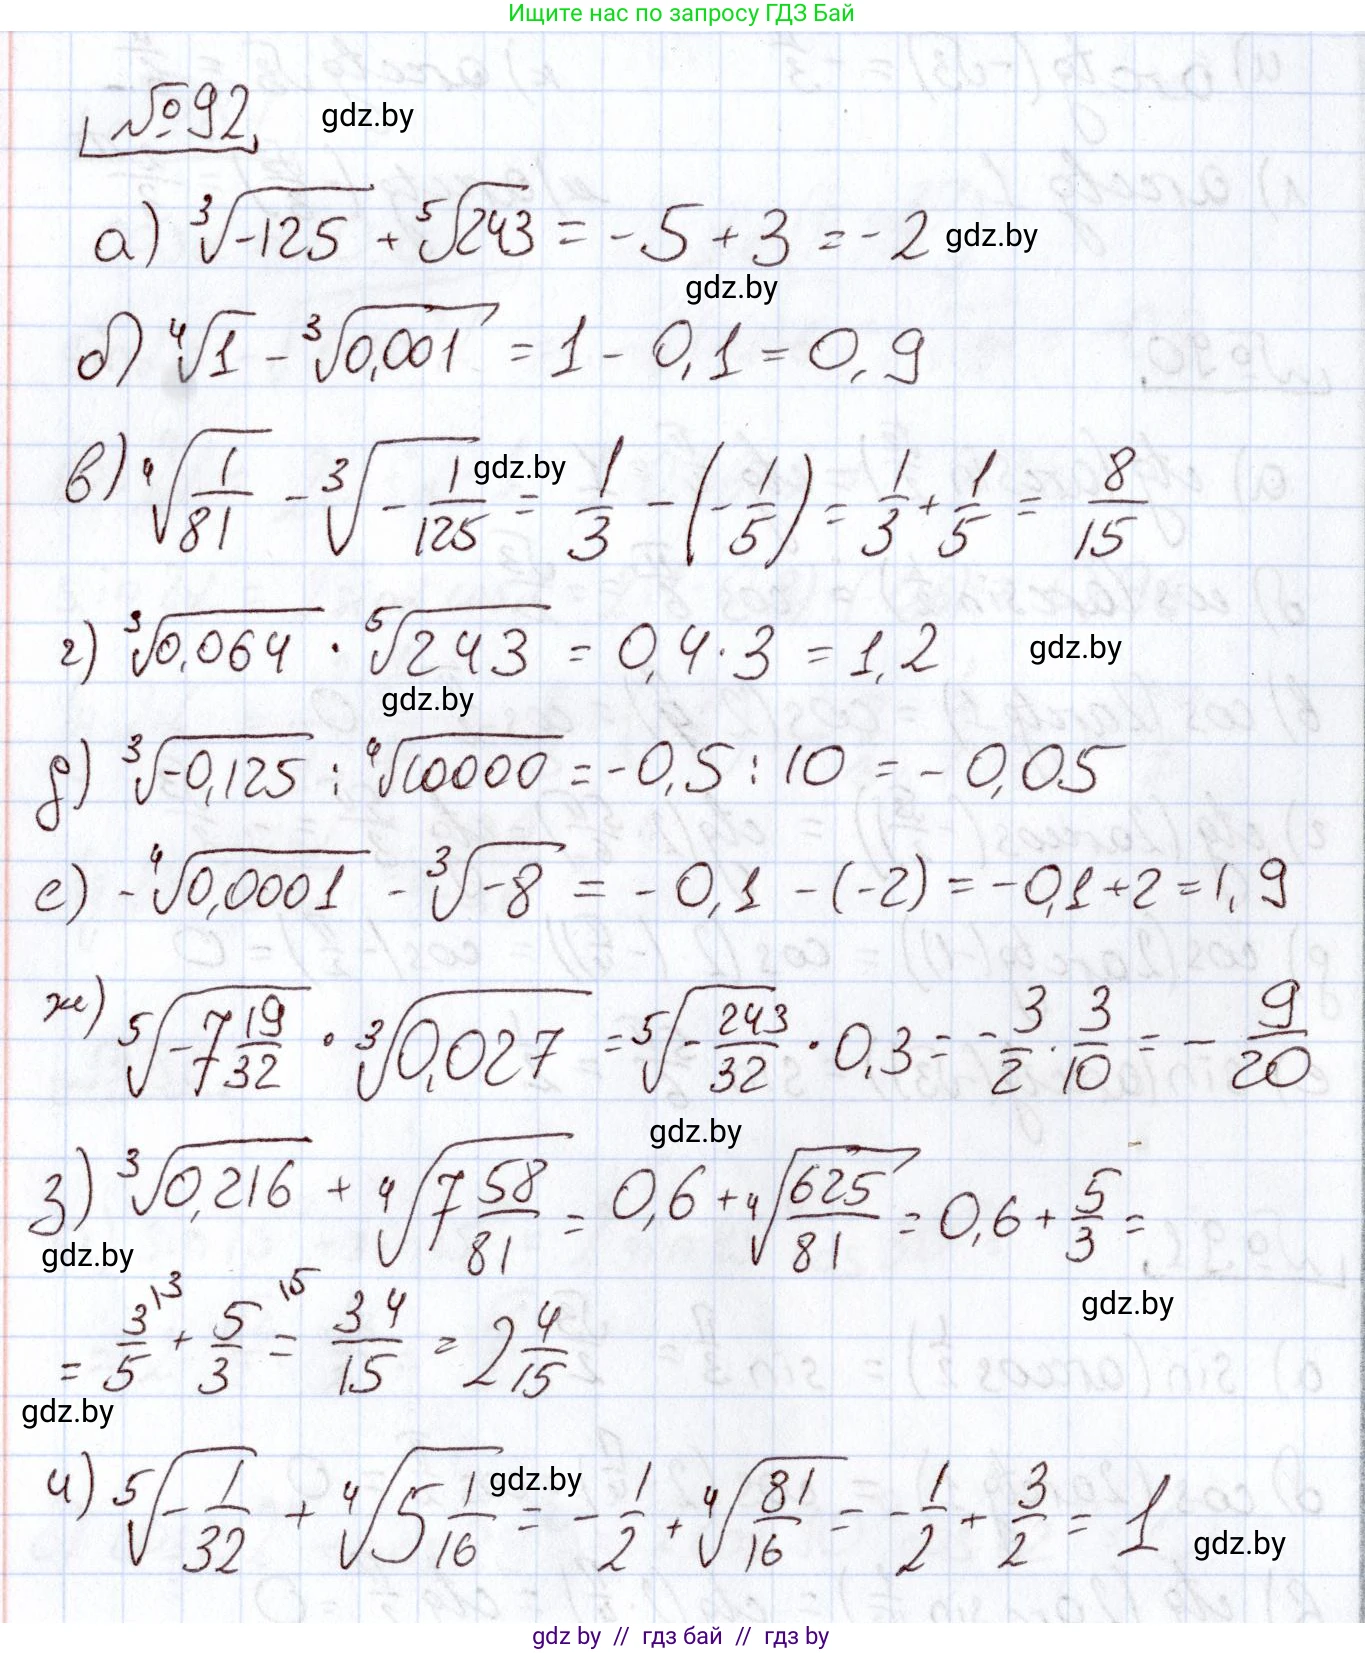 Ищите нас по запросу ГДЗ Бай
№92 gdz.by
а) ∛(-125) + ⁵√243 = -5 + 3 = -2 gdz.by
gdz.by
б) ⁴√1 - ∛0,001 = 1 - 0,1 = 0,9
в) ⁴√(1/81) - ∛(-1/125) = 1/3 - (-1/5) = 1/3 + 1/5 = 8/15 gdz.by
г) ∛0,064 · ⁵√243 = 0,4 · 3 = 1,2 gdz.by
gdz.by
д) ∛(-0,125) : ⁴√10000 = -0,5 : 10 = -0,05
е) -⁴√0,0001 - ∛(-8) = -0,1 - (-2) = -0,1 + 2 = 1,9
ж) ⁵√(-7 19/32) · ∛0,027 = ⁵√(-243/32) · 0,3 = -3/2 · 3/10 = -9/20
gdz.by
з) ∛0,216 + ⁴√(7 58/81) = 0,6 + ⁴√(625/81) = 0,6 + 5/3 =
gdz.by gdz.by
= 3/5 \3 + 5/3 \5 = 34/15 = 2 4/15
gdz.by
и) ⁵√(-1/32) + ⁴√(5 1/16) = -1/2 + ⁴√(81/16) = -1/2 + 3/2 = 1 gdz.by gdz.by
gdz by // гдз бай // гдз by